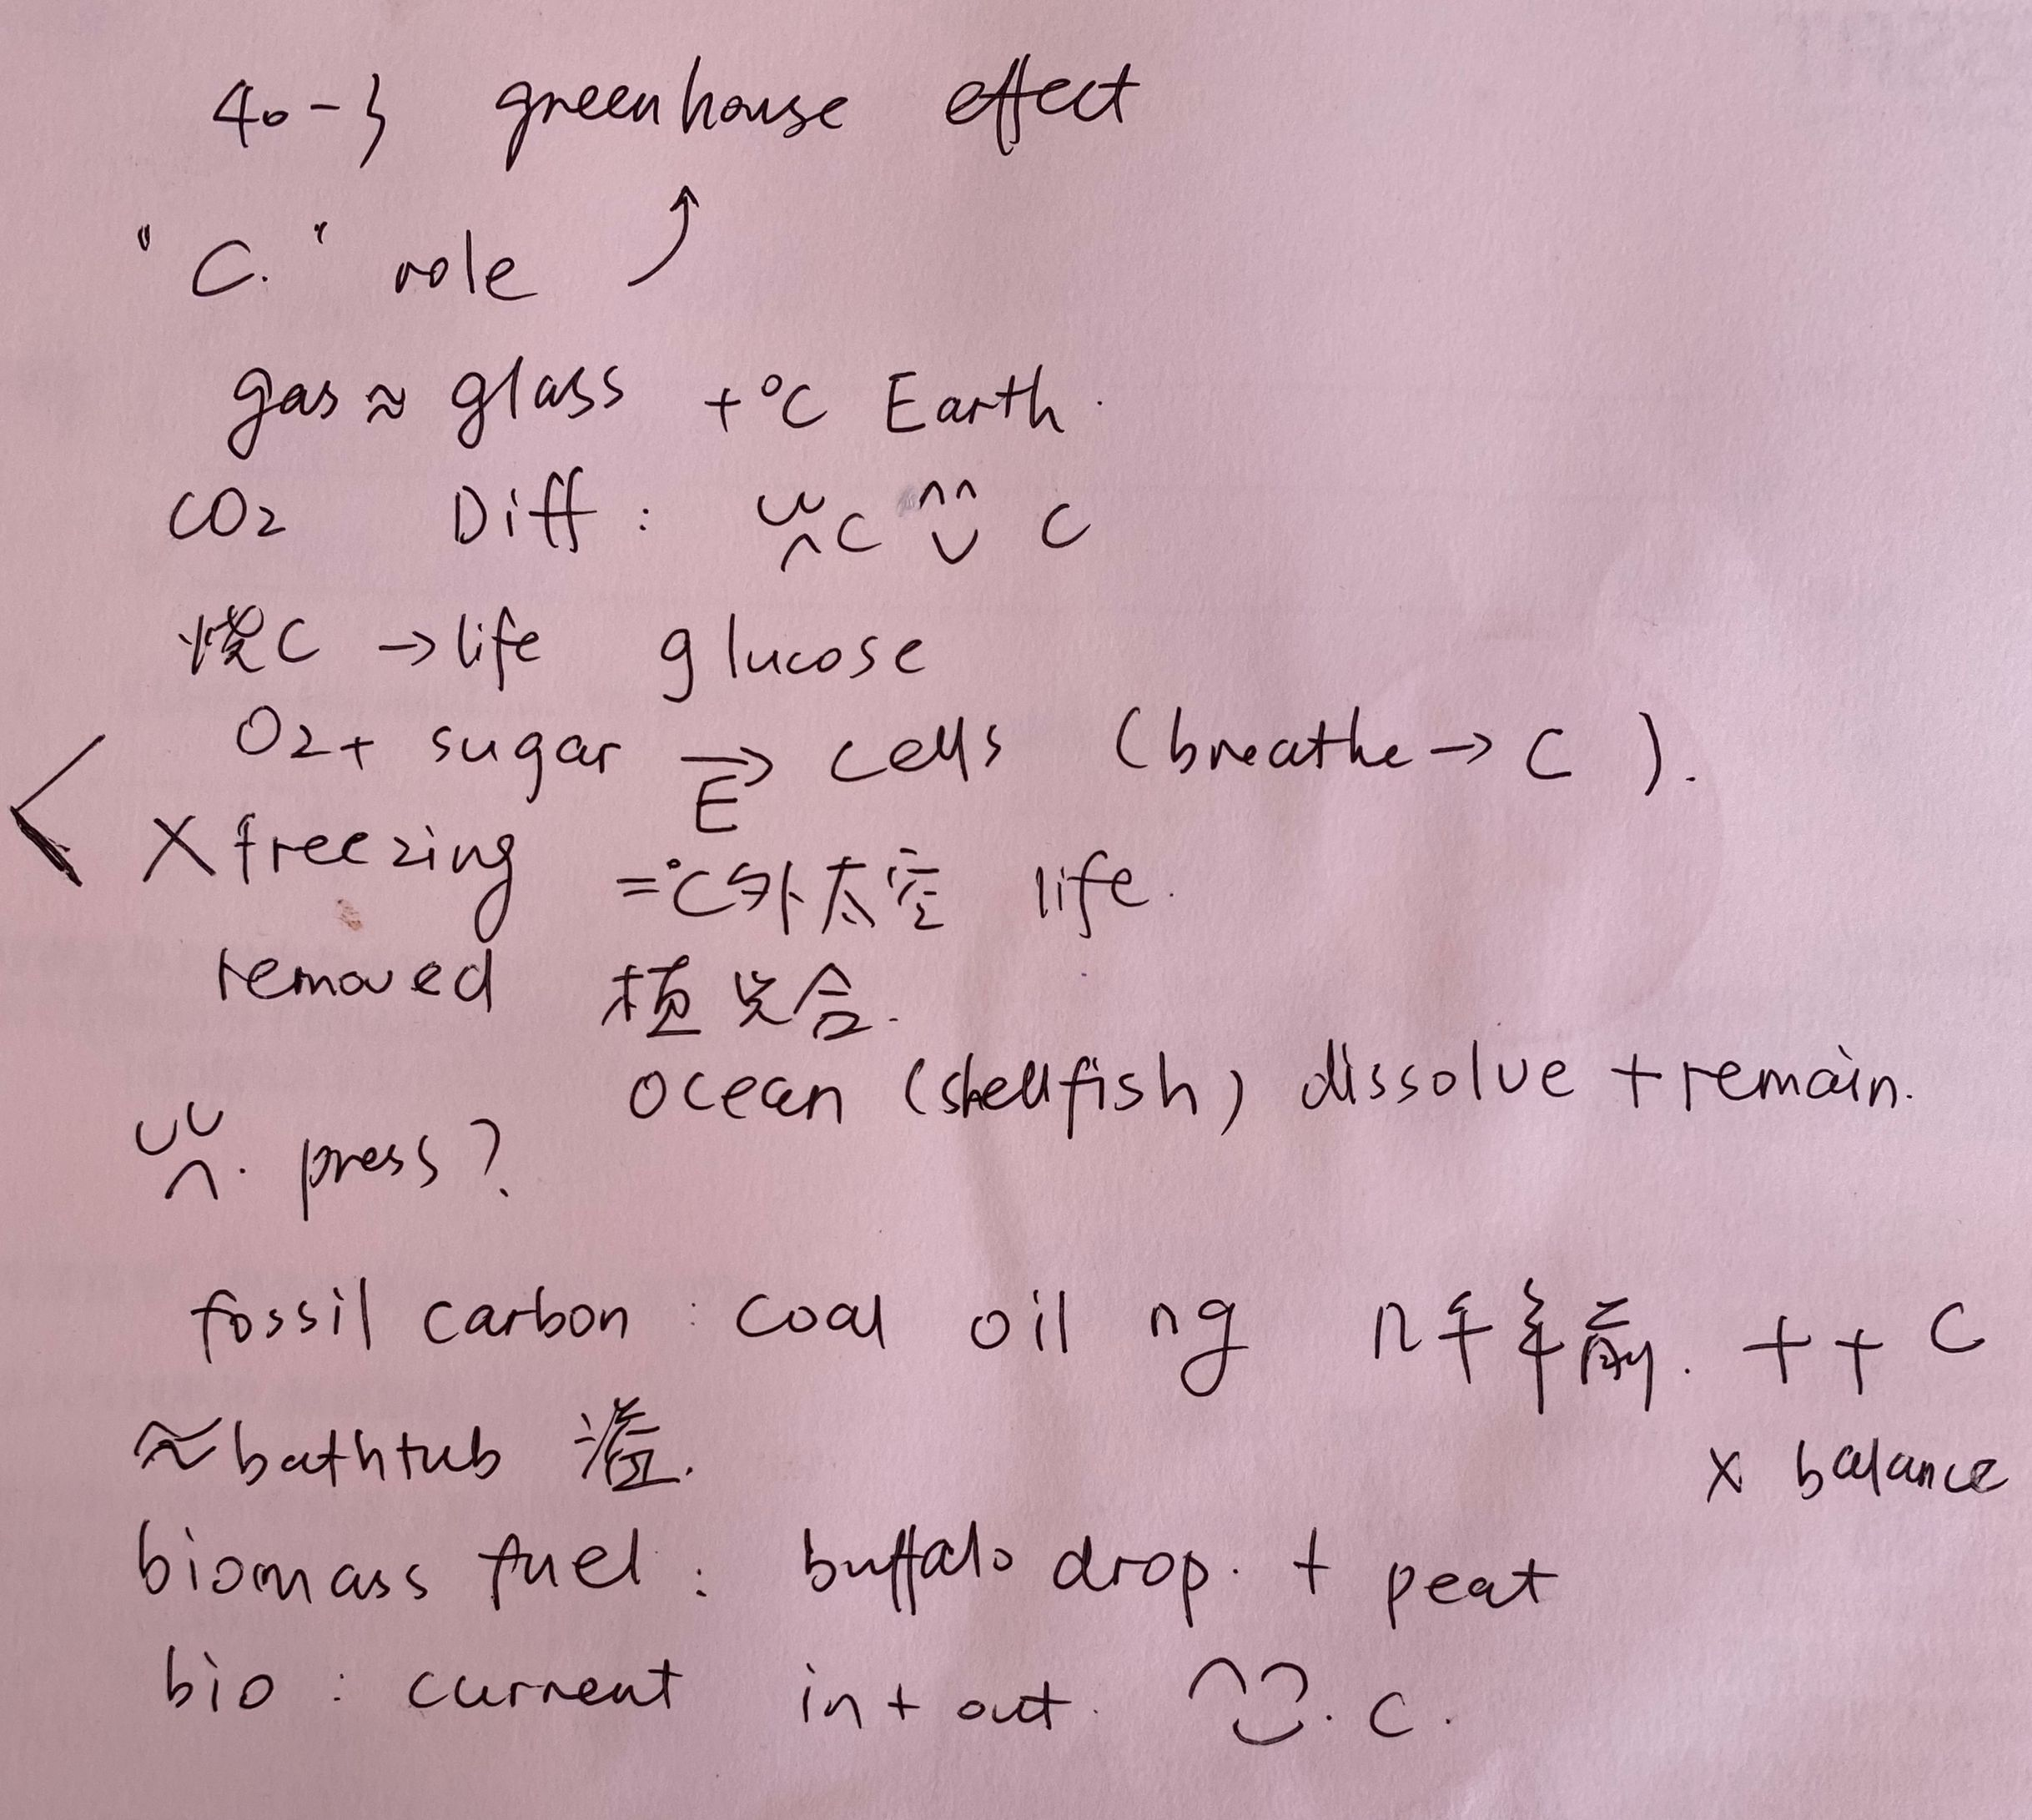 40-3 greenhouse effect
"C." role ↗
gas ≈ glass +℃ Earth.
CO2 Diff: C C
烧C → life glucose
O2 + sugar → cells (breathe → C).
E
X freezing =℃外太空 life.
removed 植光合.
ocean (shellfish) dissolve + remain.
press?
fossil carbon: coal oil ng 几千年前. ++ C
≈ bathtub 溢. X balance
biomass fuel: buffalo drop. + peat
bio: current in + out. C.